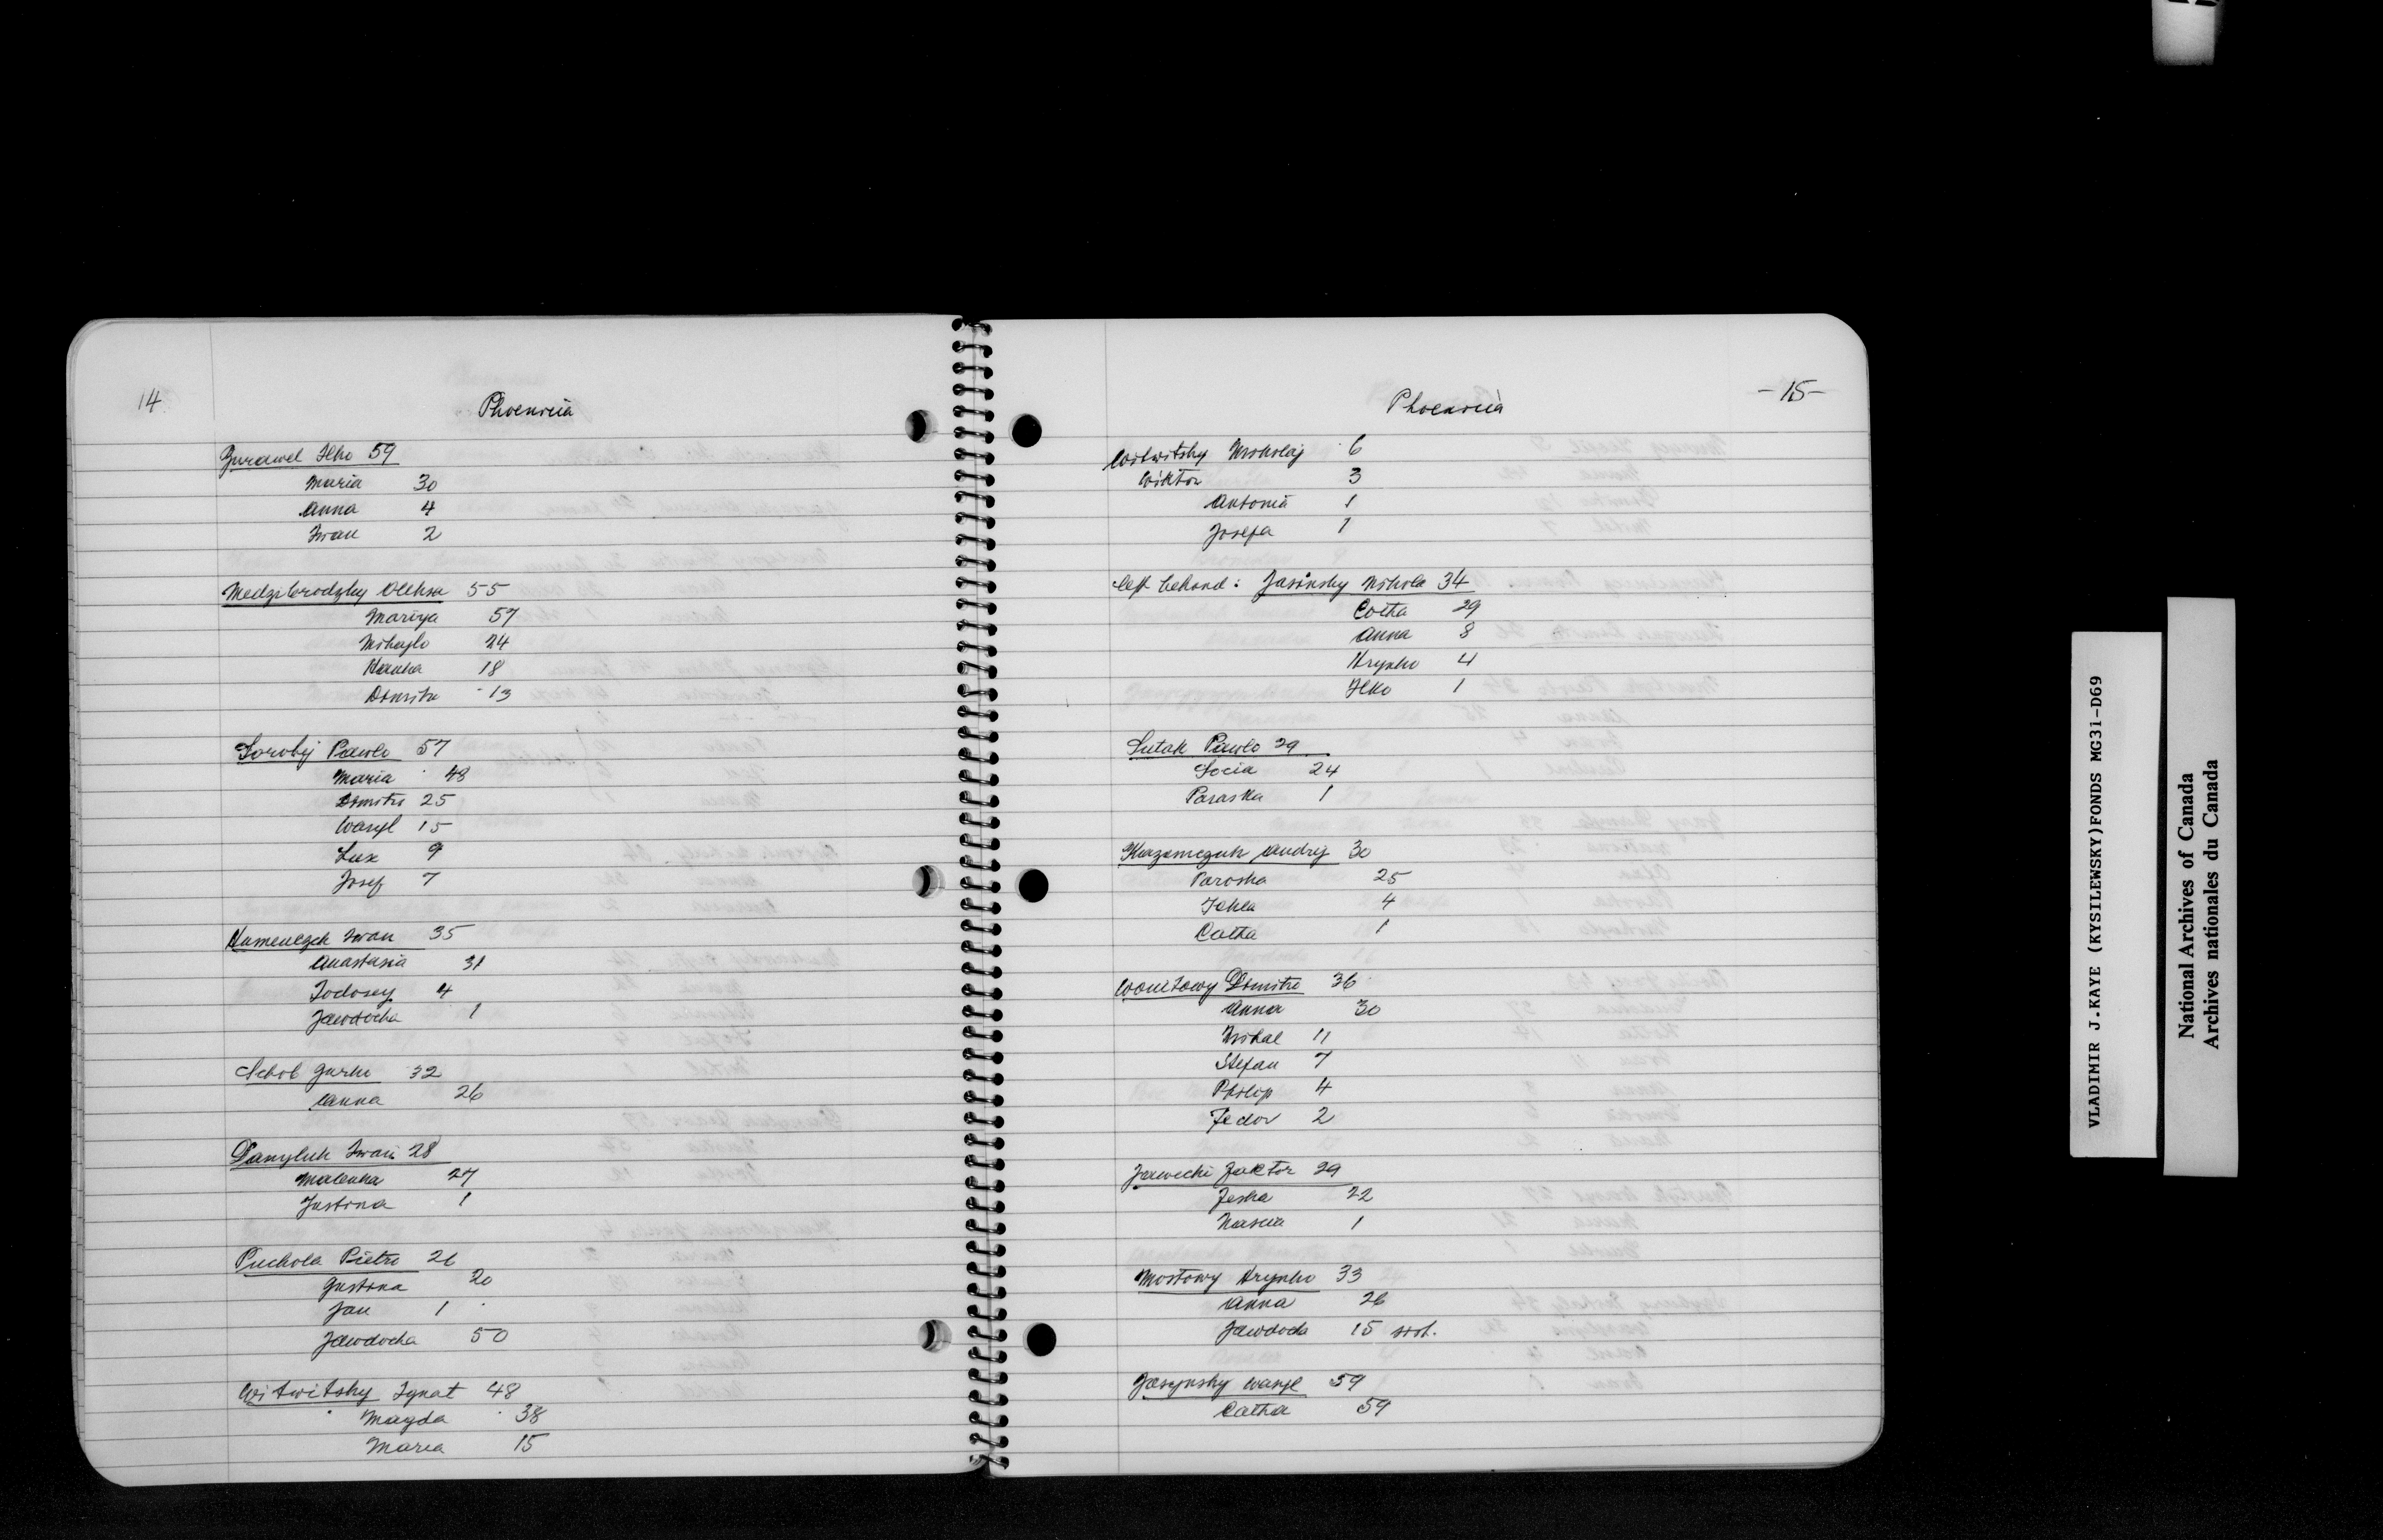 14
Phoenicia
Zurawel Ilko 59
Maria 30
Anna 4
Iwan 2
Medzibrodzky Oleksa 55
Mariya 57
Mihajlo 24
Hanka 18
Dimitri 13
Sorobij Pawlo 57
Maria 48
Dimitri 25
Wasyl 15
Lux 9
Josef 7
Iwan 35
Anastasia 31
Todosey 4
Jawdocha 1
Schob Jurko 32
Anna 26
Danyluk Iwan 28
Malanka 27
Justina 1
Puchola Pietro 21
Justina 20
Jan 1
Jawdocha 50
Witwitsky Ignat 48
Magda 38
Maria 15
-15-
Phoenicia
Witwitsky Mikolaj 6
Wiktor 3
Antonia 1
Josefa 1
left behind: Jasinsky Nikola 34
Catha 29
Anna 8
Hrynko 4
Ilko 1
Lutak Pawlo 29
Socia 24
Paraska 1
Andrij 30
Paroska 25
Tekla 4
Catha 1
Wonitowy Dimitri 36
Anna 30
Mikal 11
Stefan 7
Philip 4
Fedor 2
Jawecki 29
Feska 22
Nascia 1
Mostowy Hrynko 33
Anna 26
Jawdocha 15 sist.
Jasynsky Wasyl 59
Catha 59
VLADIMIR J.KAYE (KYSILEWSKY)FONDS MG31-D69
National Archives of Canada
Archives nationales du Canada